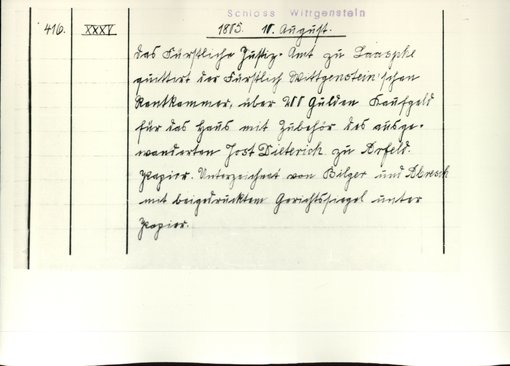 Schloss Wittgenstein
416. XXXV 1813. 11. August.
Das Fürstliche Justiz-Amt zu Laasphe
quittirt der Fürstlich Wittgenstein'schen
Rentkammer, über 200 Gulden Kaufgeld
für das Haus mit Zubehör des ausge-
wanderten Jost Dieterich zu Arfeld.
Papier. Unterzeichnet von Bilger und
mit beigedrucktem Gerichtssiegel unter
Papier.